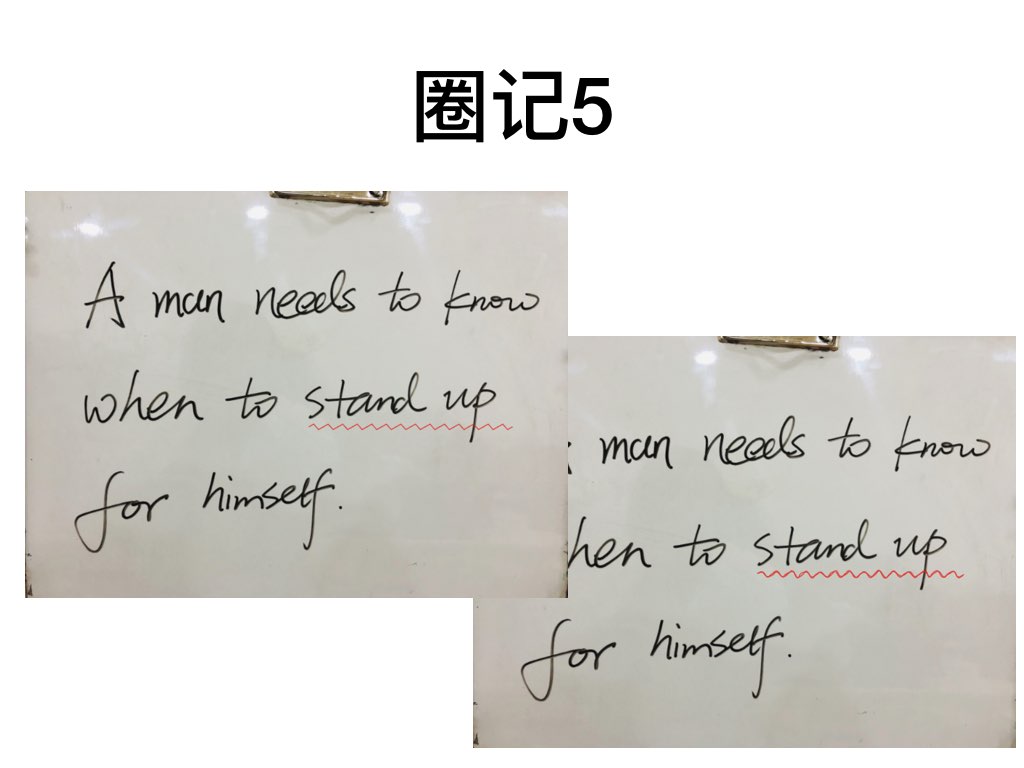 圈记5
A man needs to know
when to stand up
for himself.
man needs to know
hen to stand up
for himself.